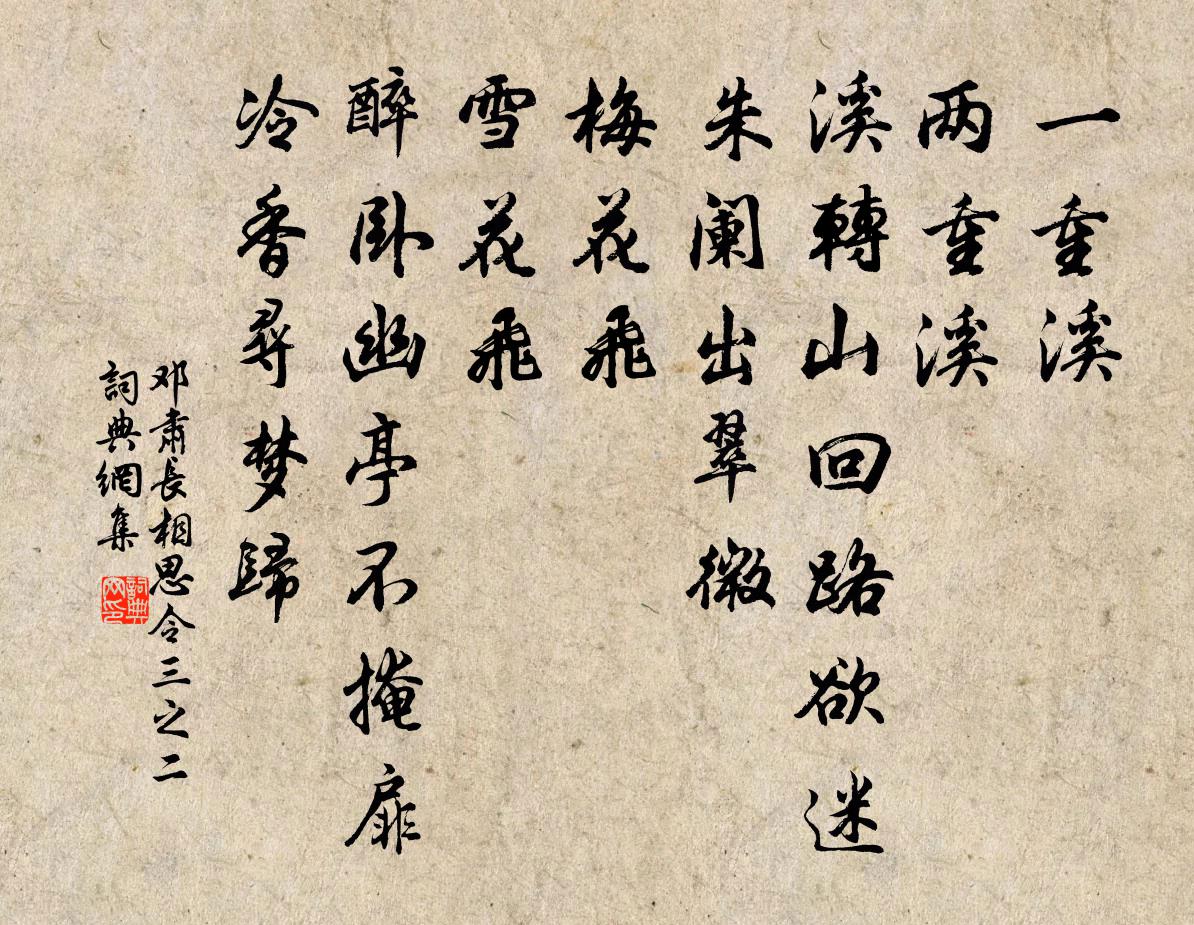 一重溪
两重溪
溪轉山回路欲迷
朱阑出翠微
梅花飛
雪花飛
醉卧幽亭不掩扉
冷香尋梦歸
邓肅長相思令三之二
詞典網集
詞典網印